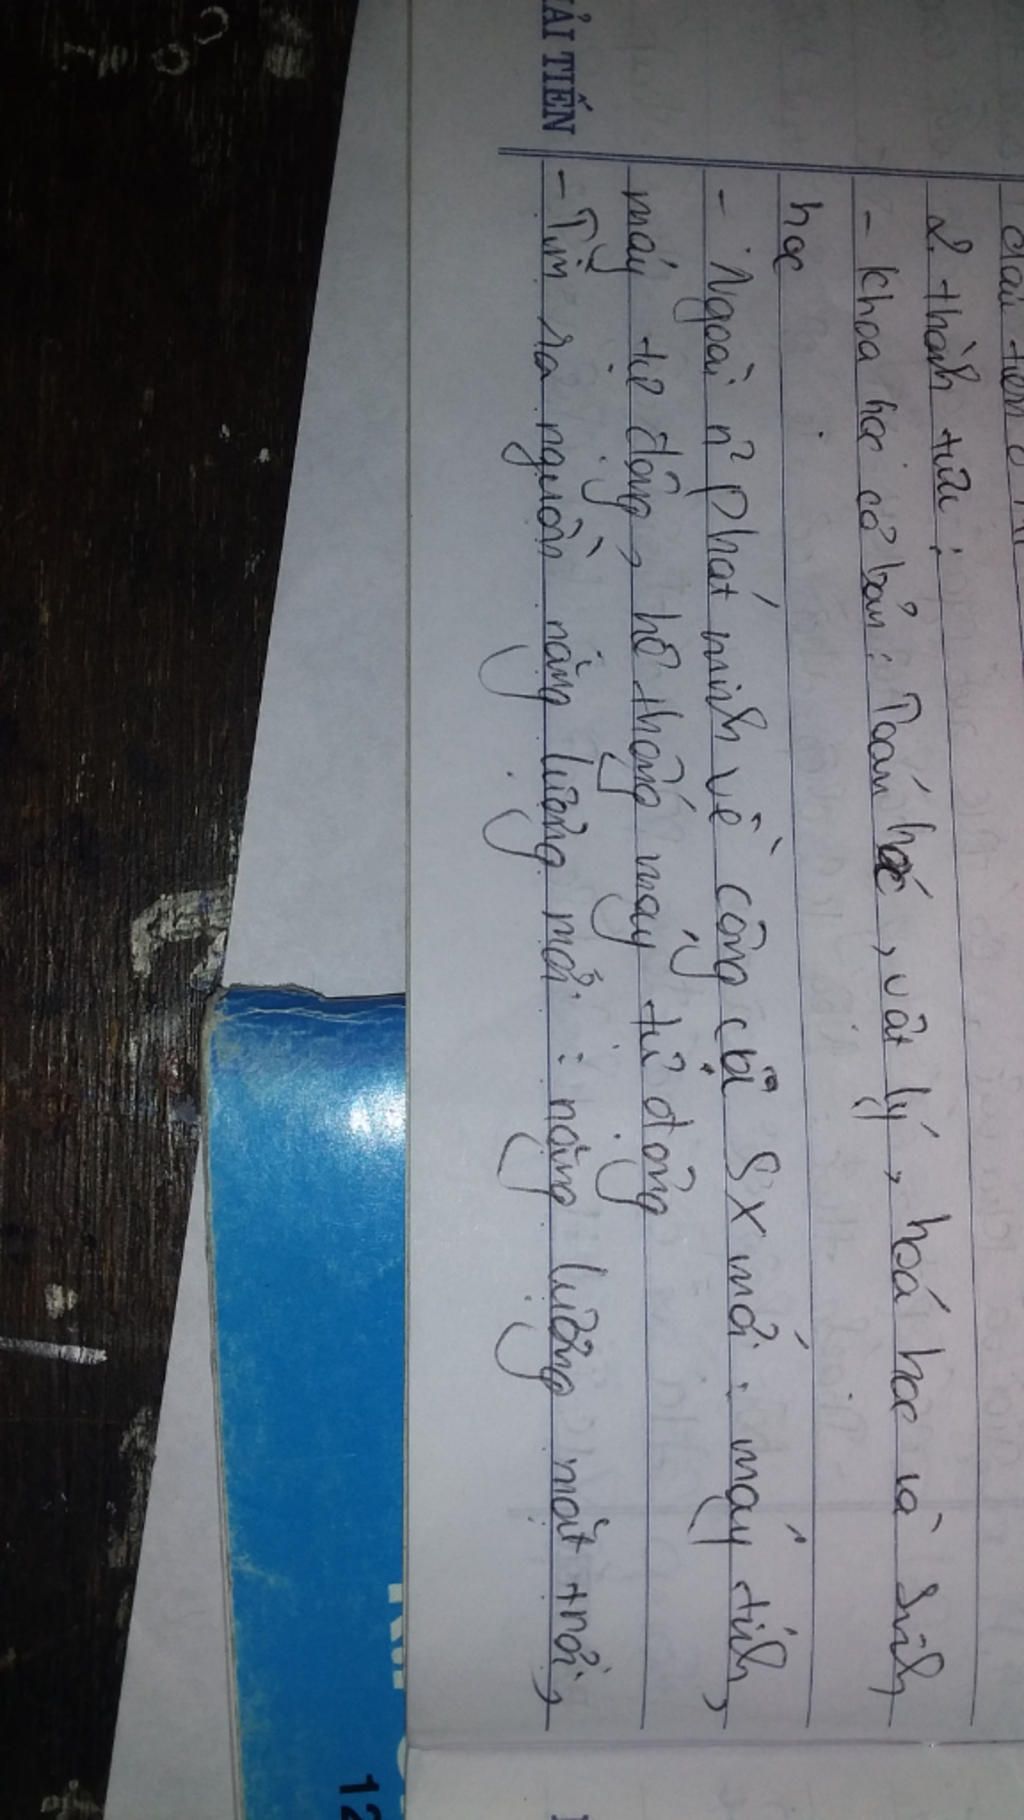 đầu tiên ở
2. thành tựu:
- Khoa học cơ bản: Toán học, vật lý, hoá học và sinh
học
- Ngoài n~ phát minh về công cụ SX mới: máy tính,
máy tự động, hệ thống máy tự động
- Tìm ra nguồn năng lượng mới: năng lượng mặt trời,
ẢI TIẾN
12